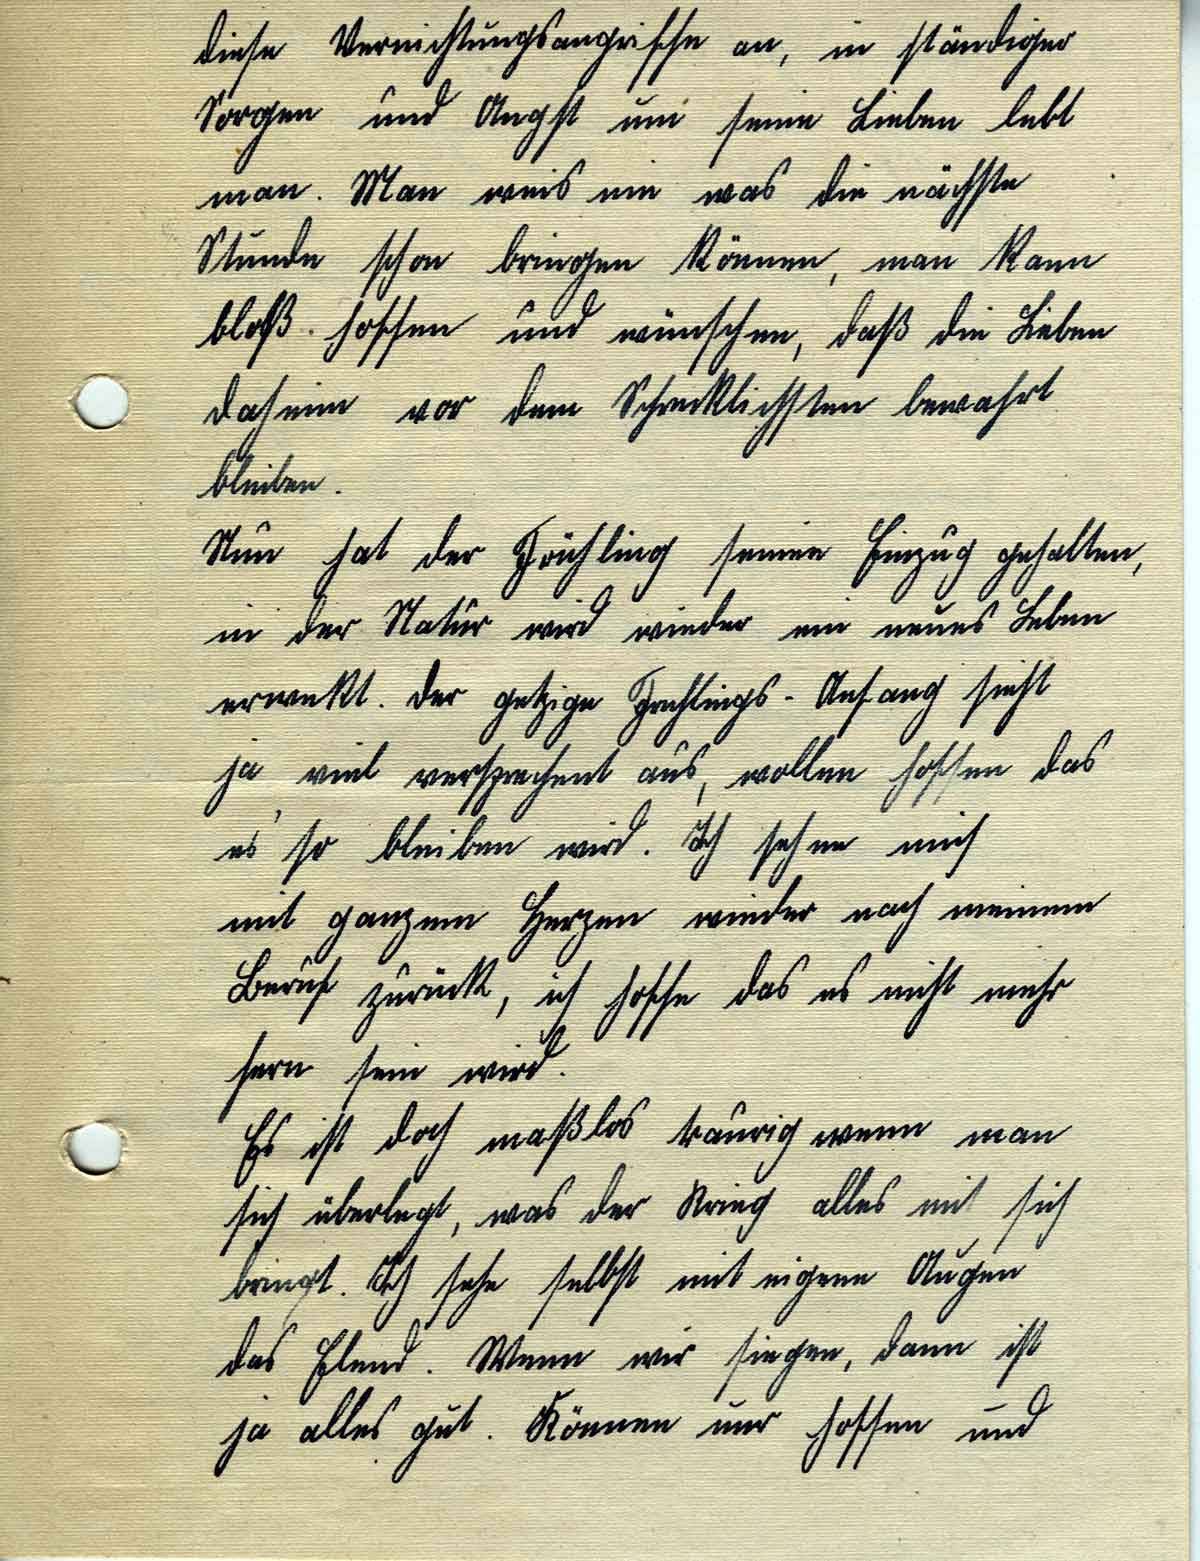 diese Vernichtungsangriffe an, in ständiger
Sorgen und Angst um seine Lieben lebt
man. Man weis nie was die nächste
Stunde schon bringen können, man kann
bloß hoffen und wünschen, daß die Lieben
daheim vor dem Schrecklichsten bewahrt
bleiben.
Nun hat der Früchling seinen Einzug gehalten,
in der Natur wird wieder ein neues Leben
erwekt. Der getzige Frehlings-Anfang sieht
ja viel versprechent aus, wollen hoffen das
es so bleiben wird. Ich sehne mich
mit ganzem Herzen wieder nach meinem
Beruf zurück, ich hoffe das es nicht mehr
fern sein wird.
Es ist doch maßlos traurig wenn man
sich überlegt, was der Krieg alles mit sich
bringt. Ich sehe selbst mit eigene Augen
das Elend. Wenn wir siegen, dann ist
ja alles gut. Können nur hoffen und